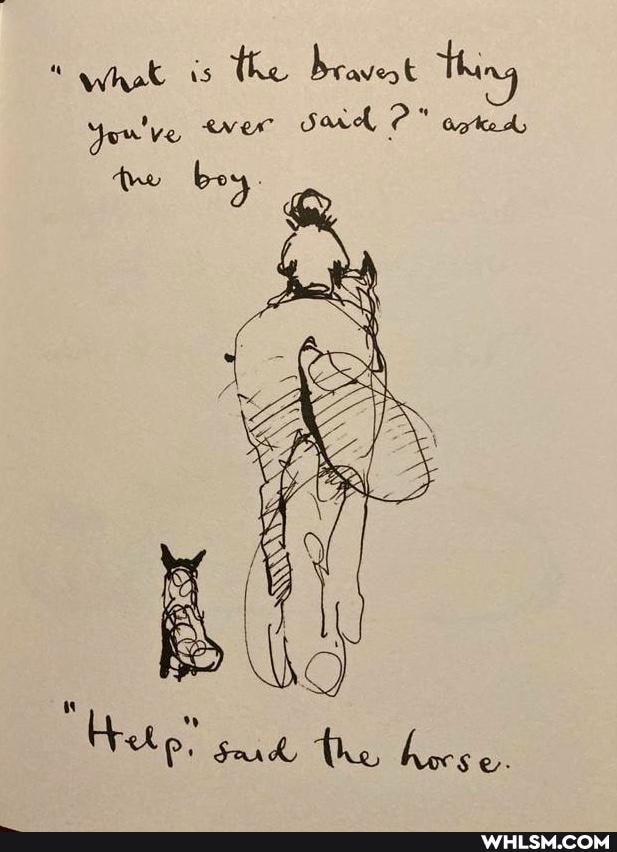 "What is the bravest thing
you've ever said?" asked
the boy.
"Help," said the horse.
WHLSM.COM